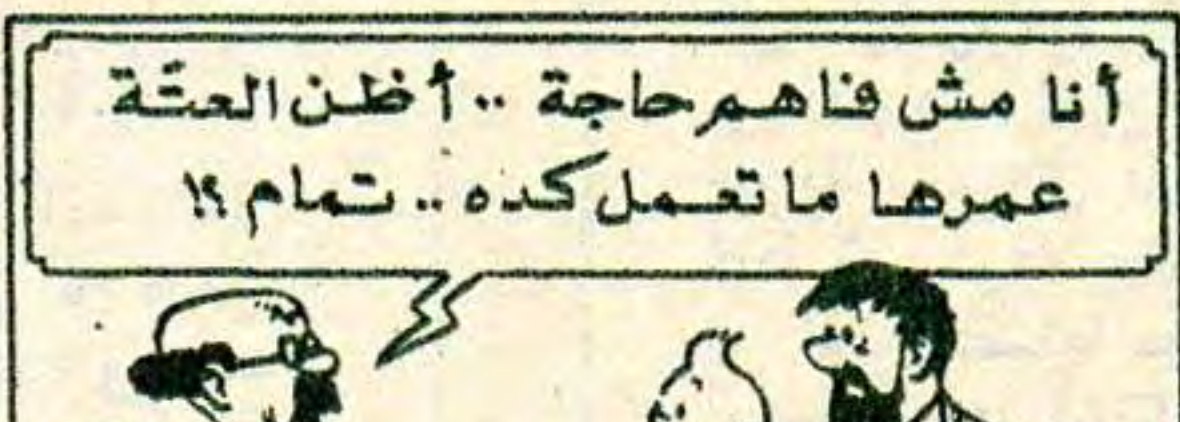 أنا مش فاهم حاجة .. أظن العتّة
عمرها ما تعمل كده .. تمام ؟!